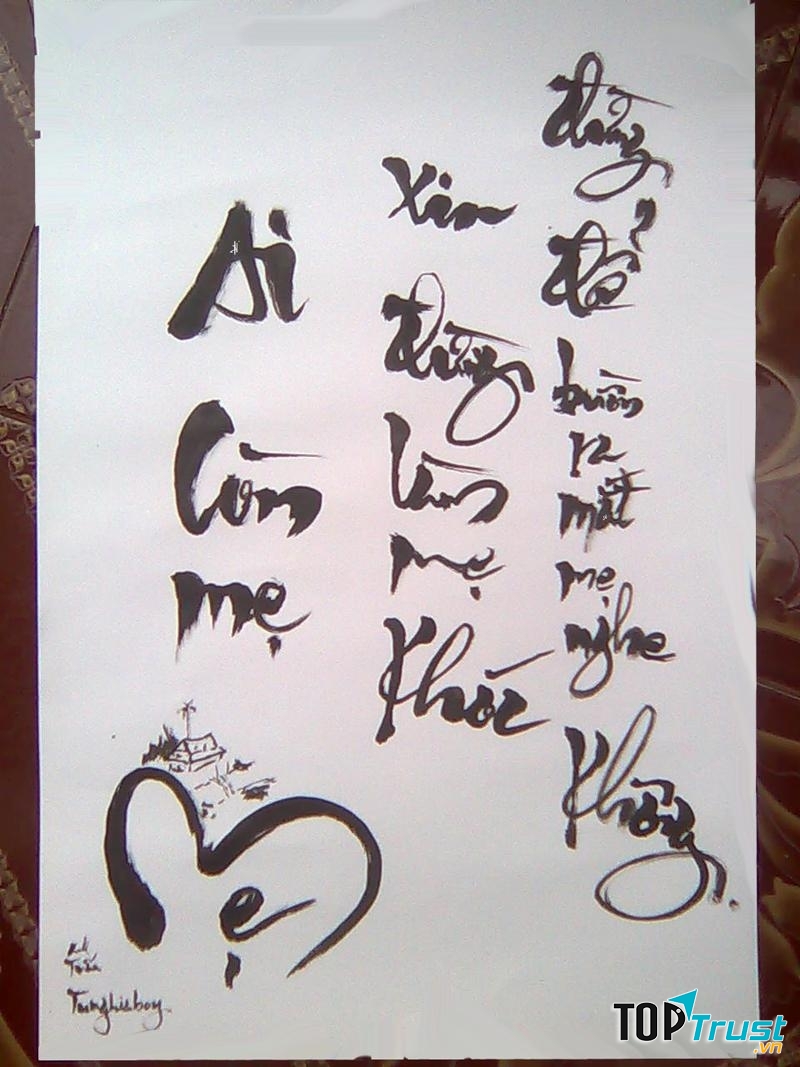 Ai Còn mẹ
Xin đừng làm mẹ khóc
Đừng để buồn ra mắt mẹ nghe không.
Mẹ
TOPTrust.vn